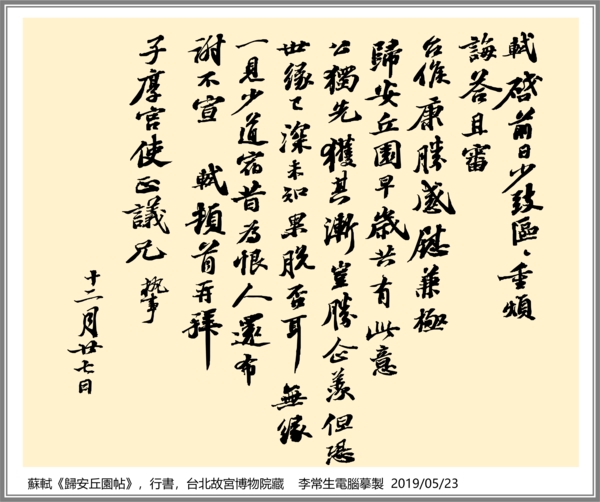 軾啓前日少致區〻重煩
誨答且審
台候康勝感慰兼極
歸安丘園早歲共有此意
公獨先獲其漸豈勝企羨但恐
世緣已深未知果脫否耳無緣
一見少道宿昔為恨人還布
謝不宣 軾頓首再拜
子厚宮使正議兄 執事
十二月廿七日
蘇軾《歸安丘園帖》，行書，台北故宮博物院蔵 李常生電腦摹製 2019/05/23